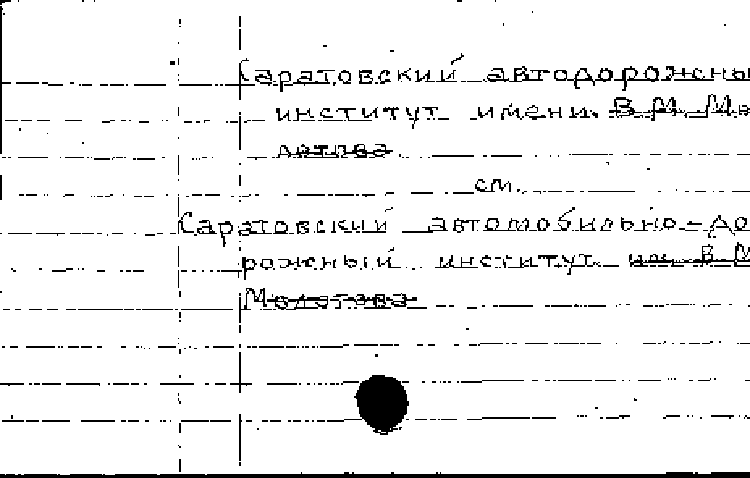 Саратовский автодорожны
институт имени В.М. Мо
лотова
см.
Саратовский автомобильно-до
рожный институт им. В.М
Молотова